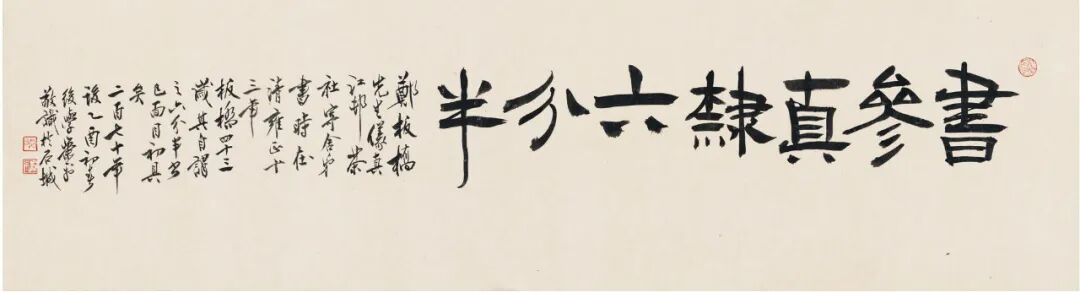 書參真隸六分半
鄭板橋
先生儀真
江邨茶
社寄舍弟
書時在
清雍正十
三年
板橋四十三
歲其自謂
之六分半書
已面目初具
矣
二百七十年
後乙酉初春
後學蕭平
敬識於石城